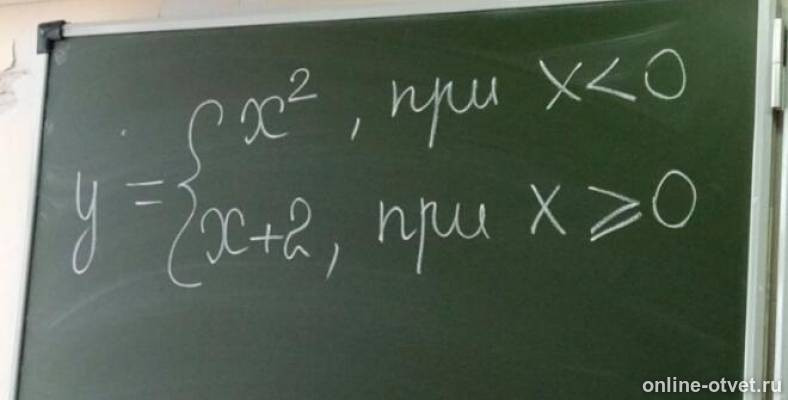 y = { x², при x < 0
x+2, при x ⩾ 0
online-otvet.ru